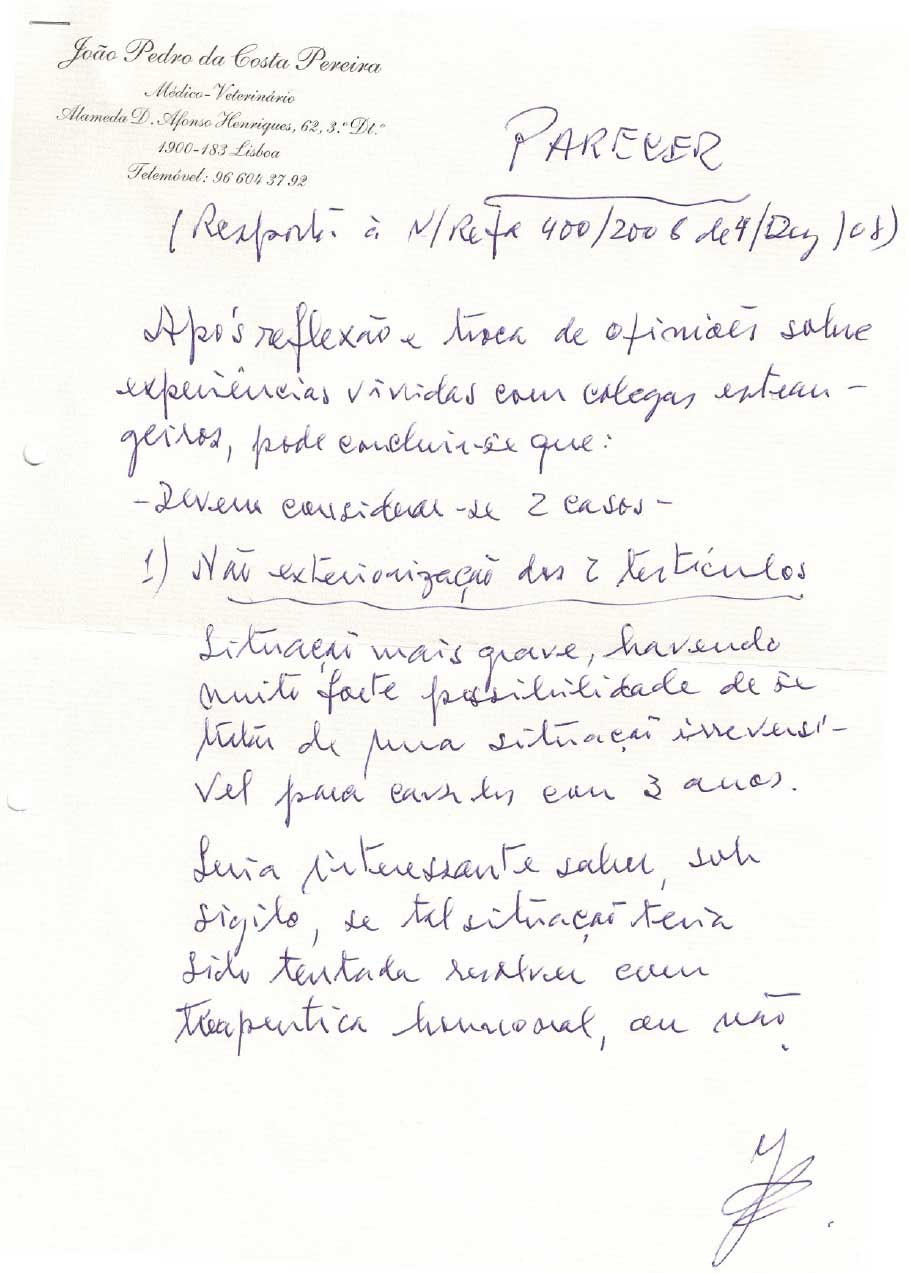 João Pedro da Costa Pereira
Médico-Veterinário
Alameda D. Afonso Henriques, 62, 3.º Dt.º
1900-183 Lisboa
Telemóvel: 96 604 37 92
PARECER
(Resposta à N/Refª 400/2008 de 4/Dez/08)
Após reflexão e troca de opiniões sobre
experiências vividas com colegas estran-
geiros, pode concluir-se que:
- Devem considerar-se 2 casos -
1) Não exteriorização dos 2 testículos
Situação mais grave, havendo
muito forte possibilidade de se
tratar de uma situação irreversí-
vel para cavalos com 3 anos.
Seria interessante saber, sob
sigilo, se tal situação teria
sido tentada resolver com
terapeutica hormonal, ou não.